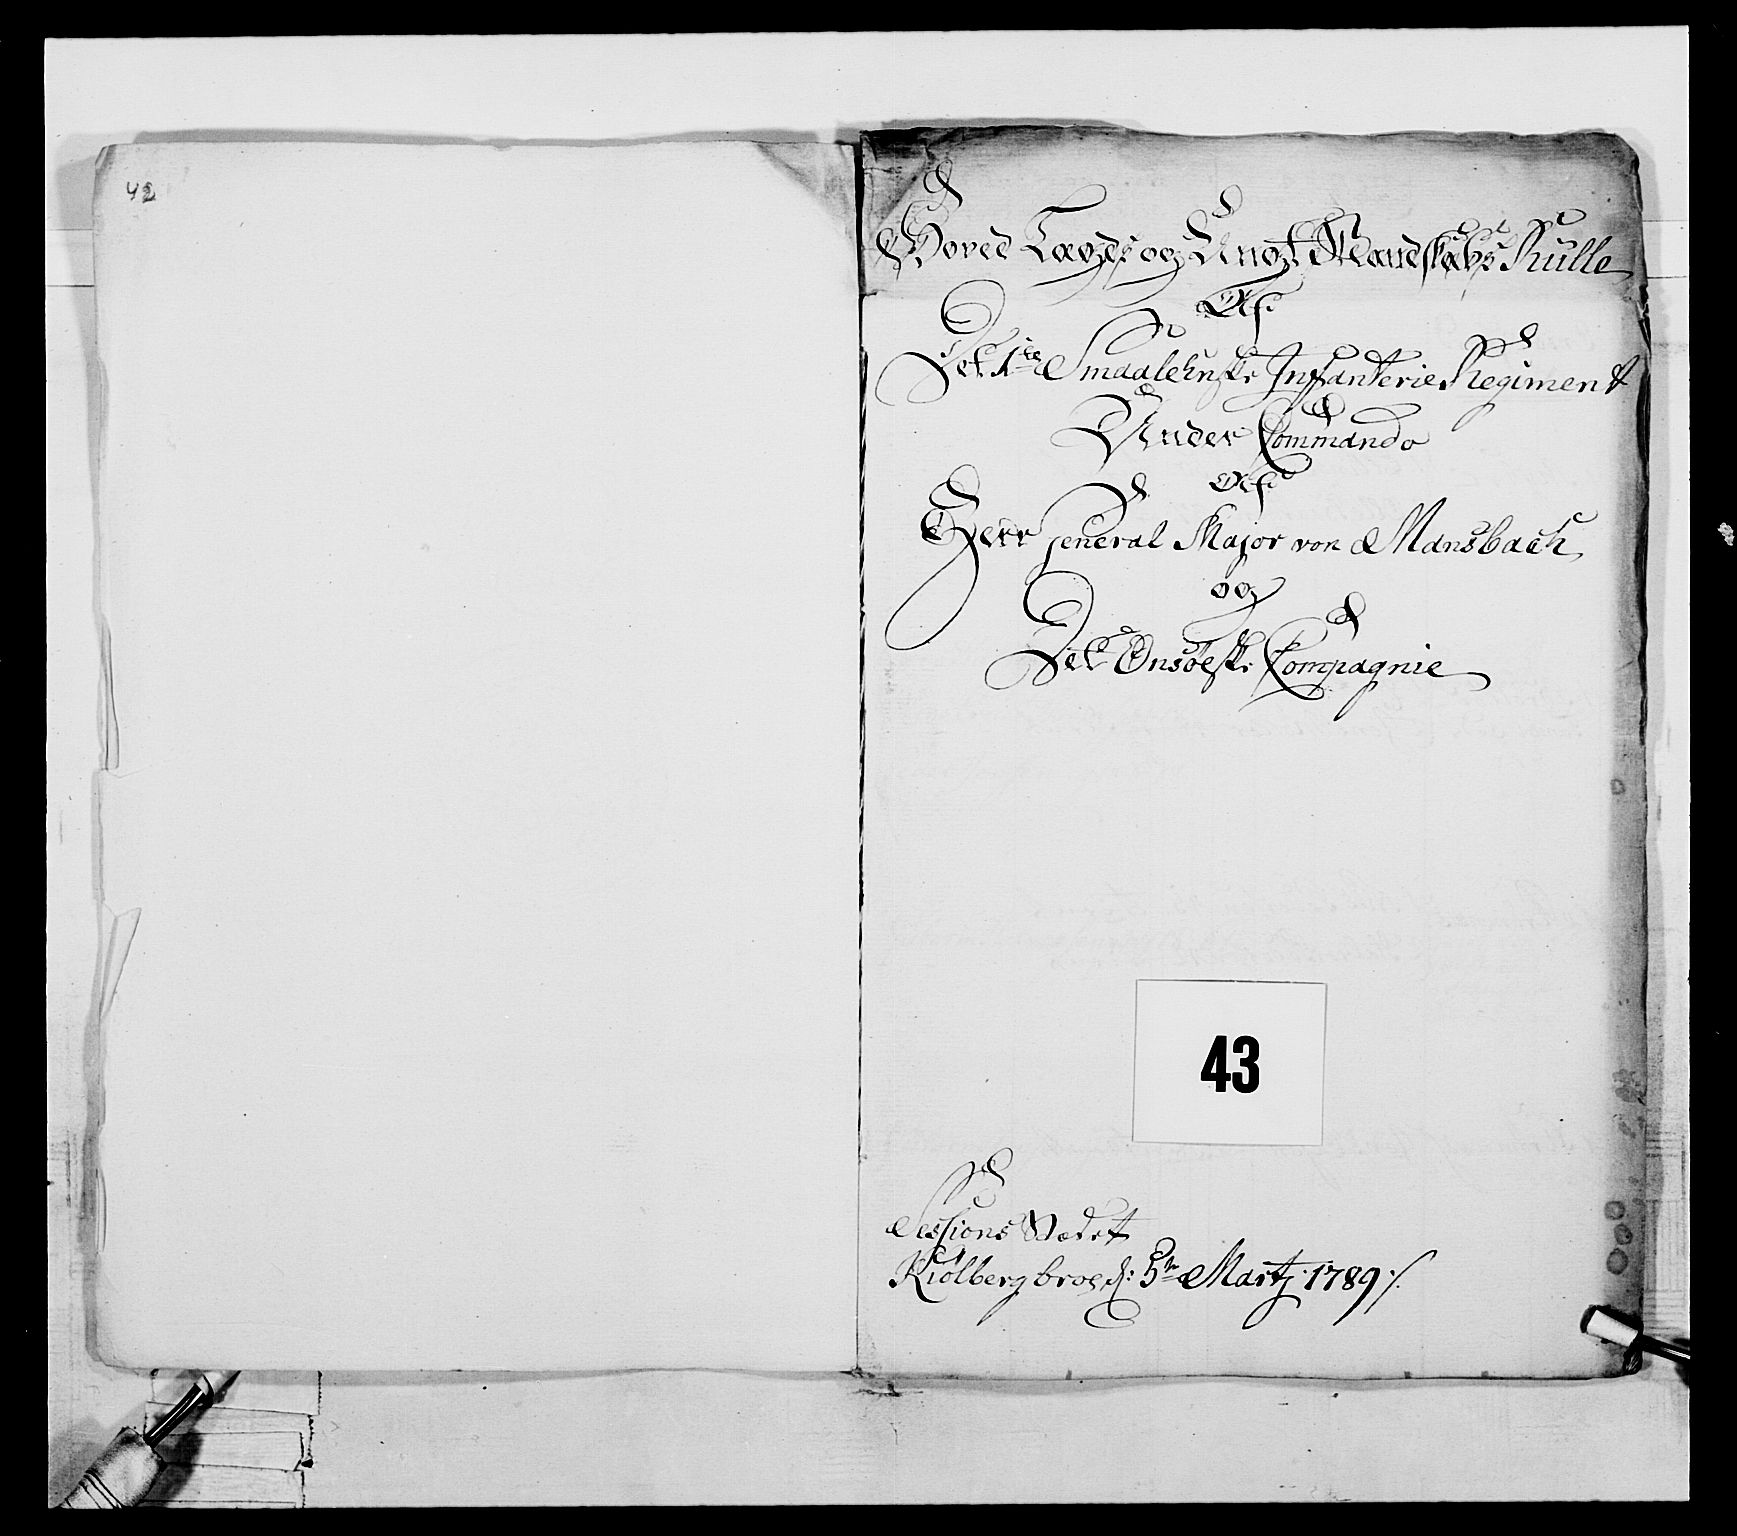 42
Hoved Lægds og Ungt Mandskabs Rulle
Af
Det 1ste Smaalehnske Infanterie Regiment
Under Commando
Af
Herr General Major von Mansbach
og
Det Onsøeske Compagnie
43
Sessions Stædet
Kiølbergbroe d: 5te Martz 1789 ·/.